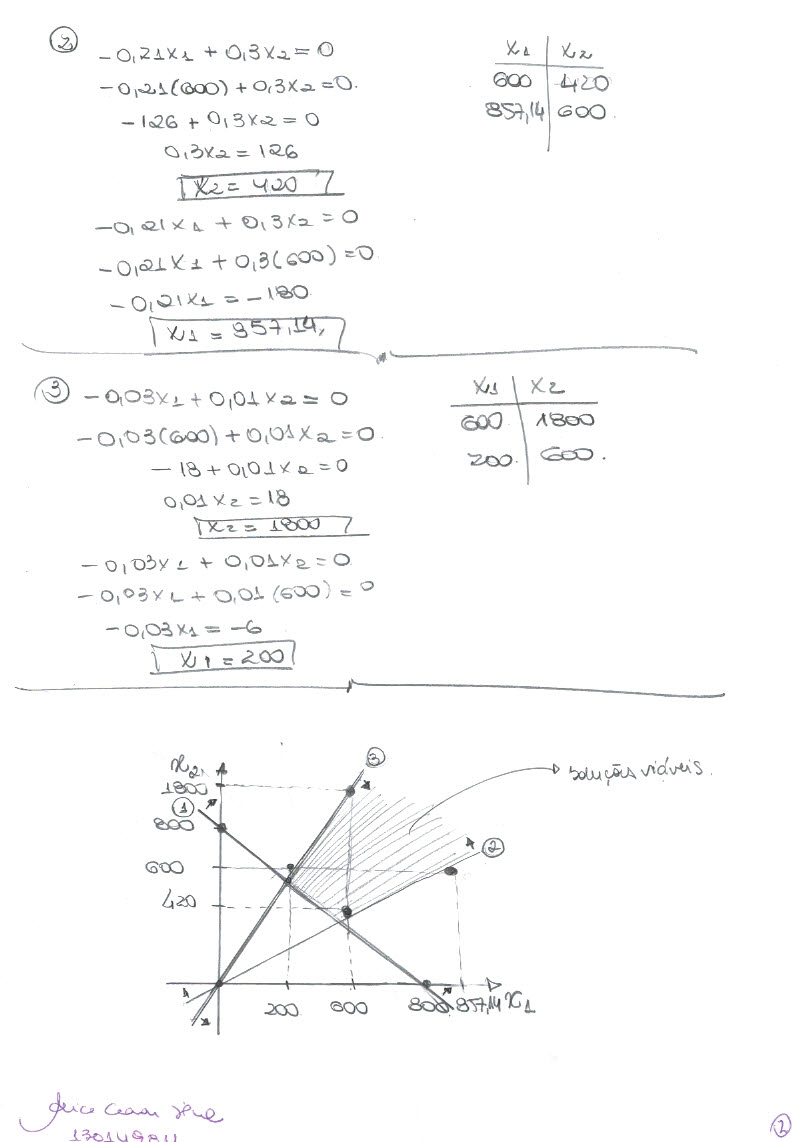 2
-0,21x1 + 0,3x2 = 0
-0,21(600) + 0,3x2 = 0.
-126 + 0,3x2 = 0
0,3x2 = 126
x2 = 420
-0,21x1 + 0,3x2 = 0
-0,21x1 + 0,3(600) = 0
-0,21x1 = -180.
x1 = 857,14,
x1 x2
600 420
857,14 600
3
-0,03x1 + 0,01x2 = 0
-0,03(600) + 0,01x2 = 0
-18 + 0,01x2 = 0
0,01x2 = 18
x2 = 1800
-0,03x1 + 0,01x2 = 0
-0,03x1 + 0,01(600) = 0
-0,03x1 = -6
x1 = 200
x1 x2
600 1800
200. 600.
x2
3
soluções viáveis.
1800
1
800
2
600
420
200 600 800 857,14 x1
2